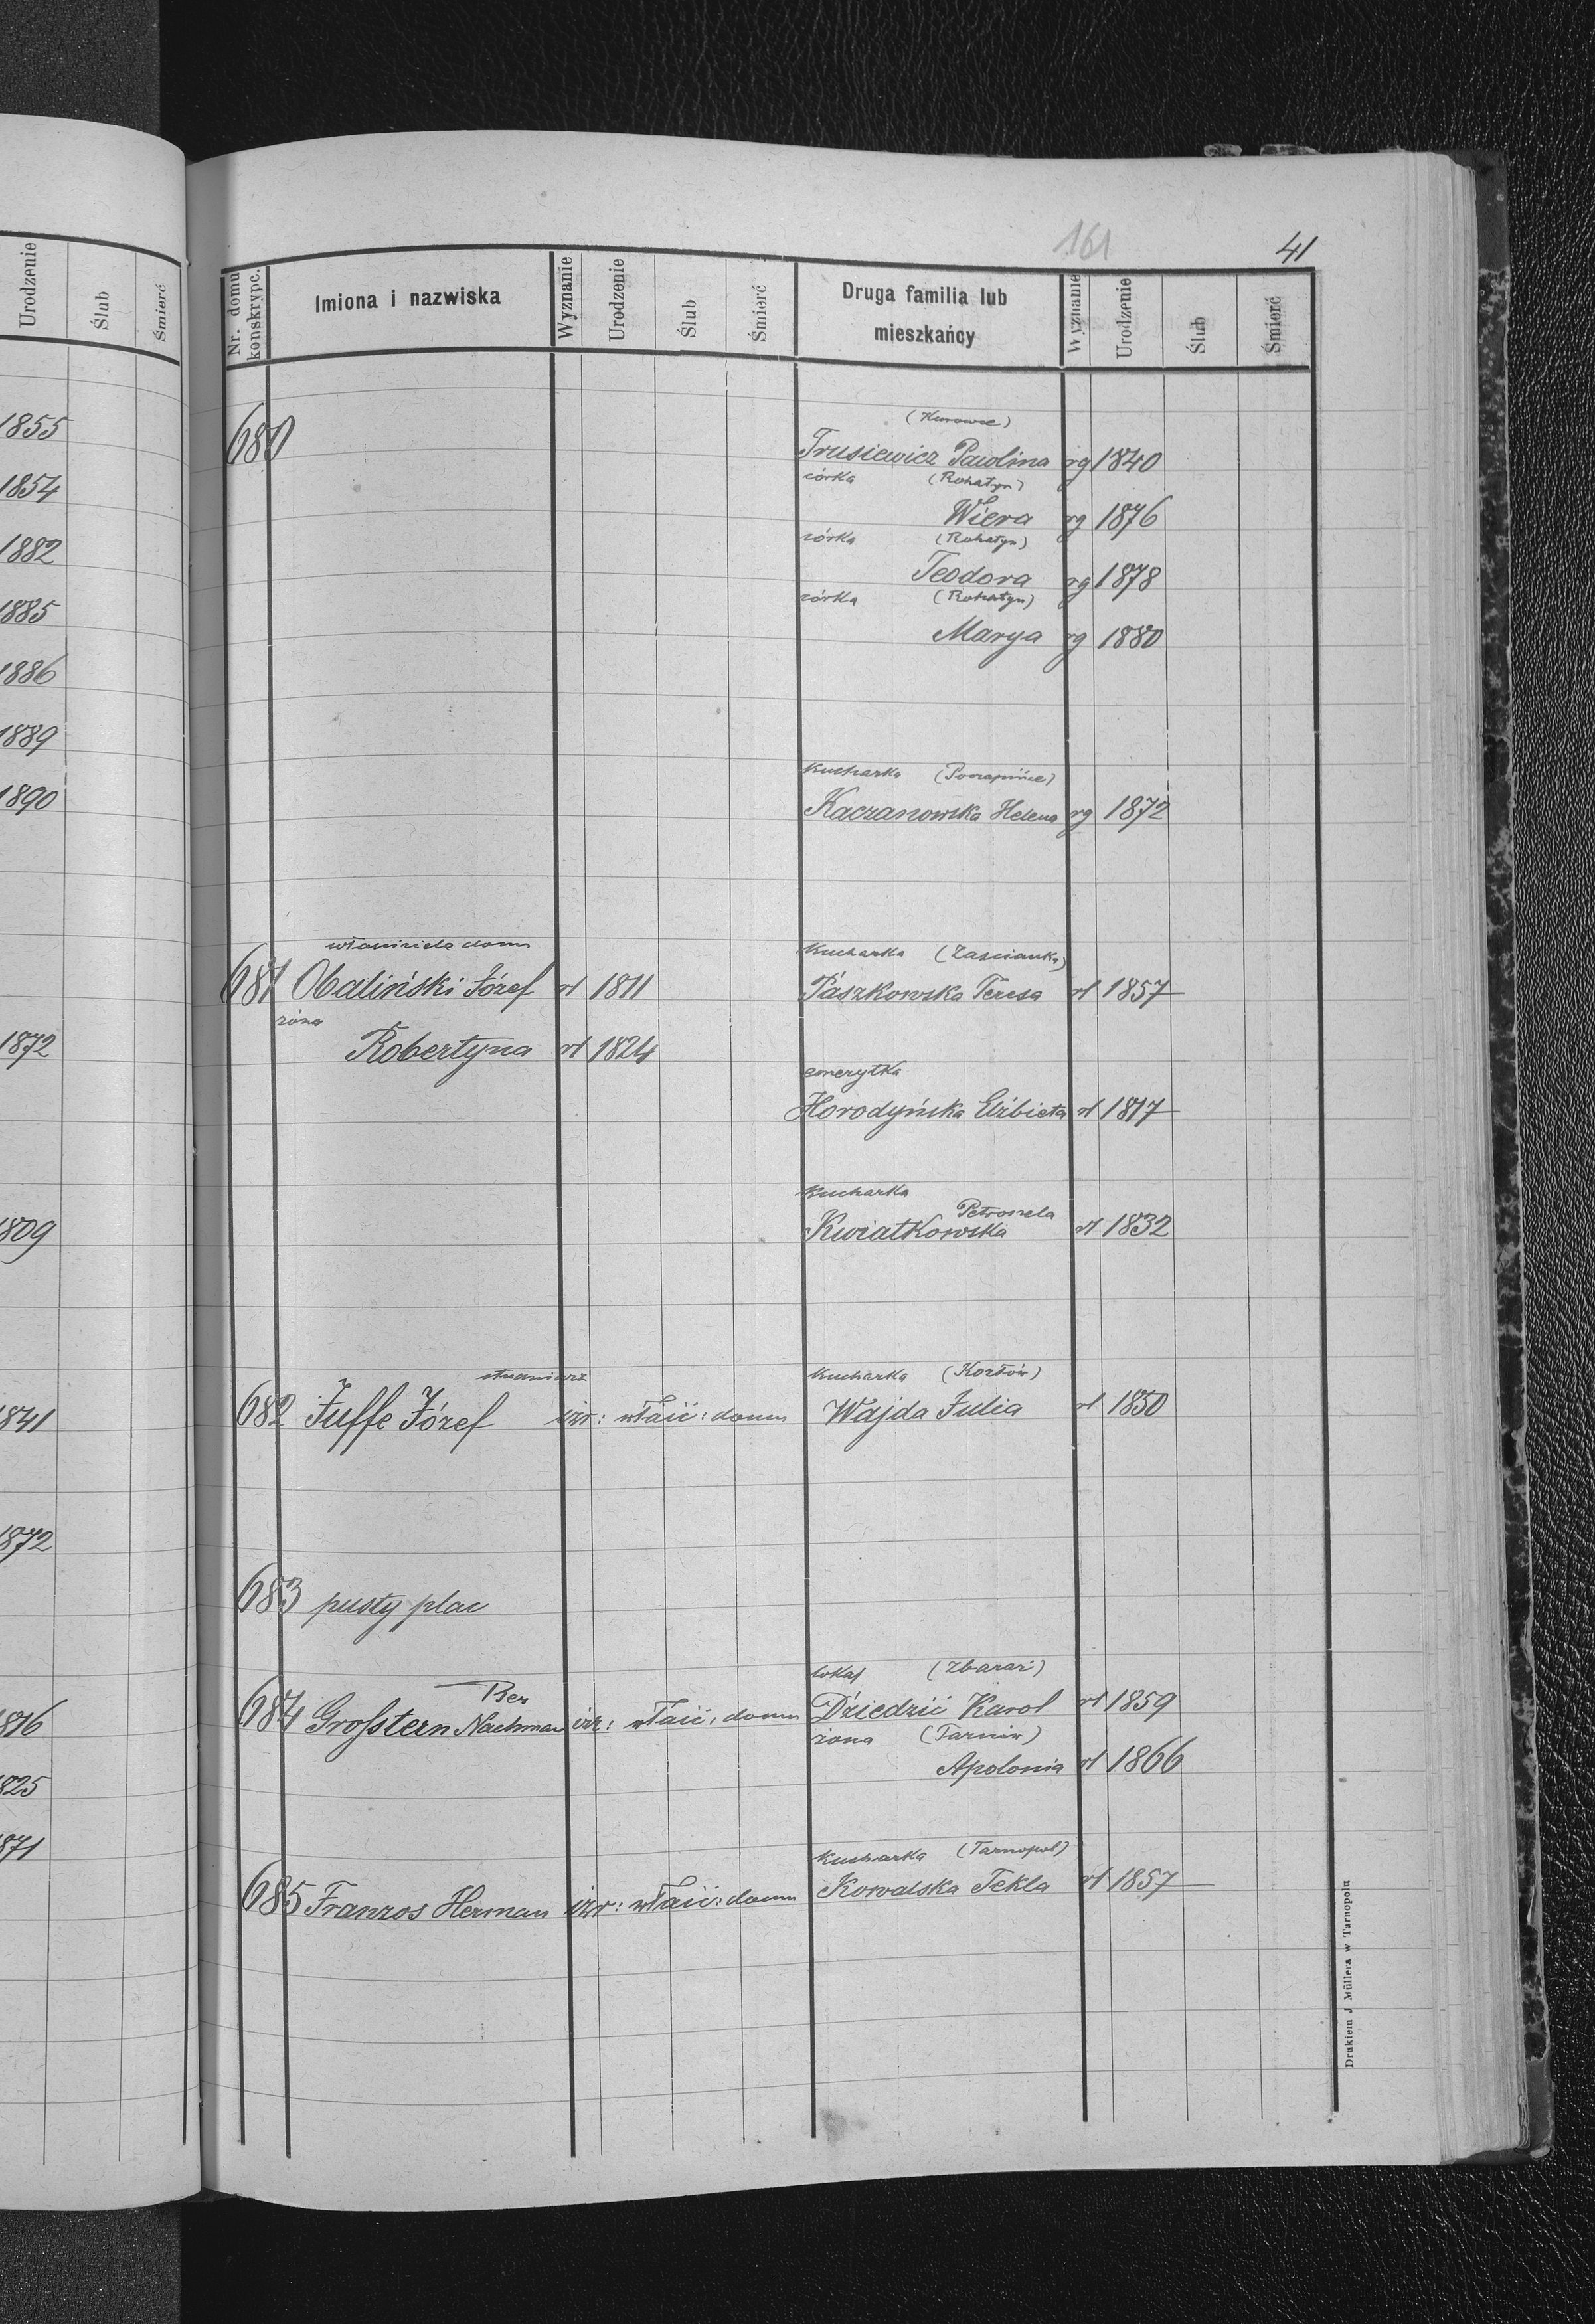 161
41
Urodzenie Ślub Śmierć
Nr. domu konskrypc. Imiona i nazwiska Wyznanie Urodzenie Ślub Śmierć Druga familia lub mieszkańcy Wyznanie Urodzenie Ślub Śmierć
1855
1854
1882
1885
1886
1889
1890
1872
1809
1841
1872
1816
1825
1871
680
(Kurowce)
Trusiewicz Paulina rg 1840
córka (Rohatyn)
Wiera rg 1876
córka (Rohatyn)
Teodora rg 1878
córka (Rohatyn)
Marya rg 1880
kucharka
Kaczanowska Helena rg 1872
właściciele domu
681 Obaliński Józef rł 1811
żona
Robertyna rł 1824
kucharka (Zaścianka)
Paszkowska Teresa rł 1857
emerytka
Horodyńska Elżbieta rł 1817
kucharka
Petronela
Kwiatkowska rł 1832
682 Juffe Józef izr: właść: domu
kucharka (Kozłów)
Wajda Julia rł 1850
683 pusty plac
Ber
684 Großtern Nachman izr: właść: domu
lokaj (Zbaraż)
Dziedzić Karol rł 1859
żona (Tarnów)
Apolonia rł 1866
685 Franzos Herman izr: właść: domu
kucharka (Tarnopol)
Kowalska Tekla rł 1857
Drukiem J Müllera w Tarnopolu